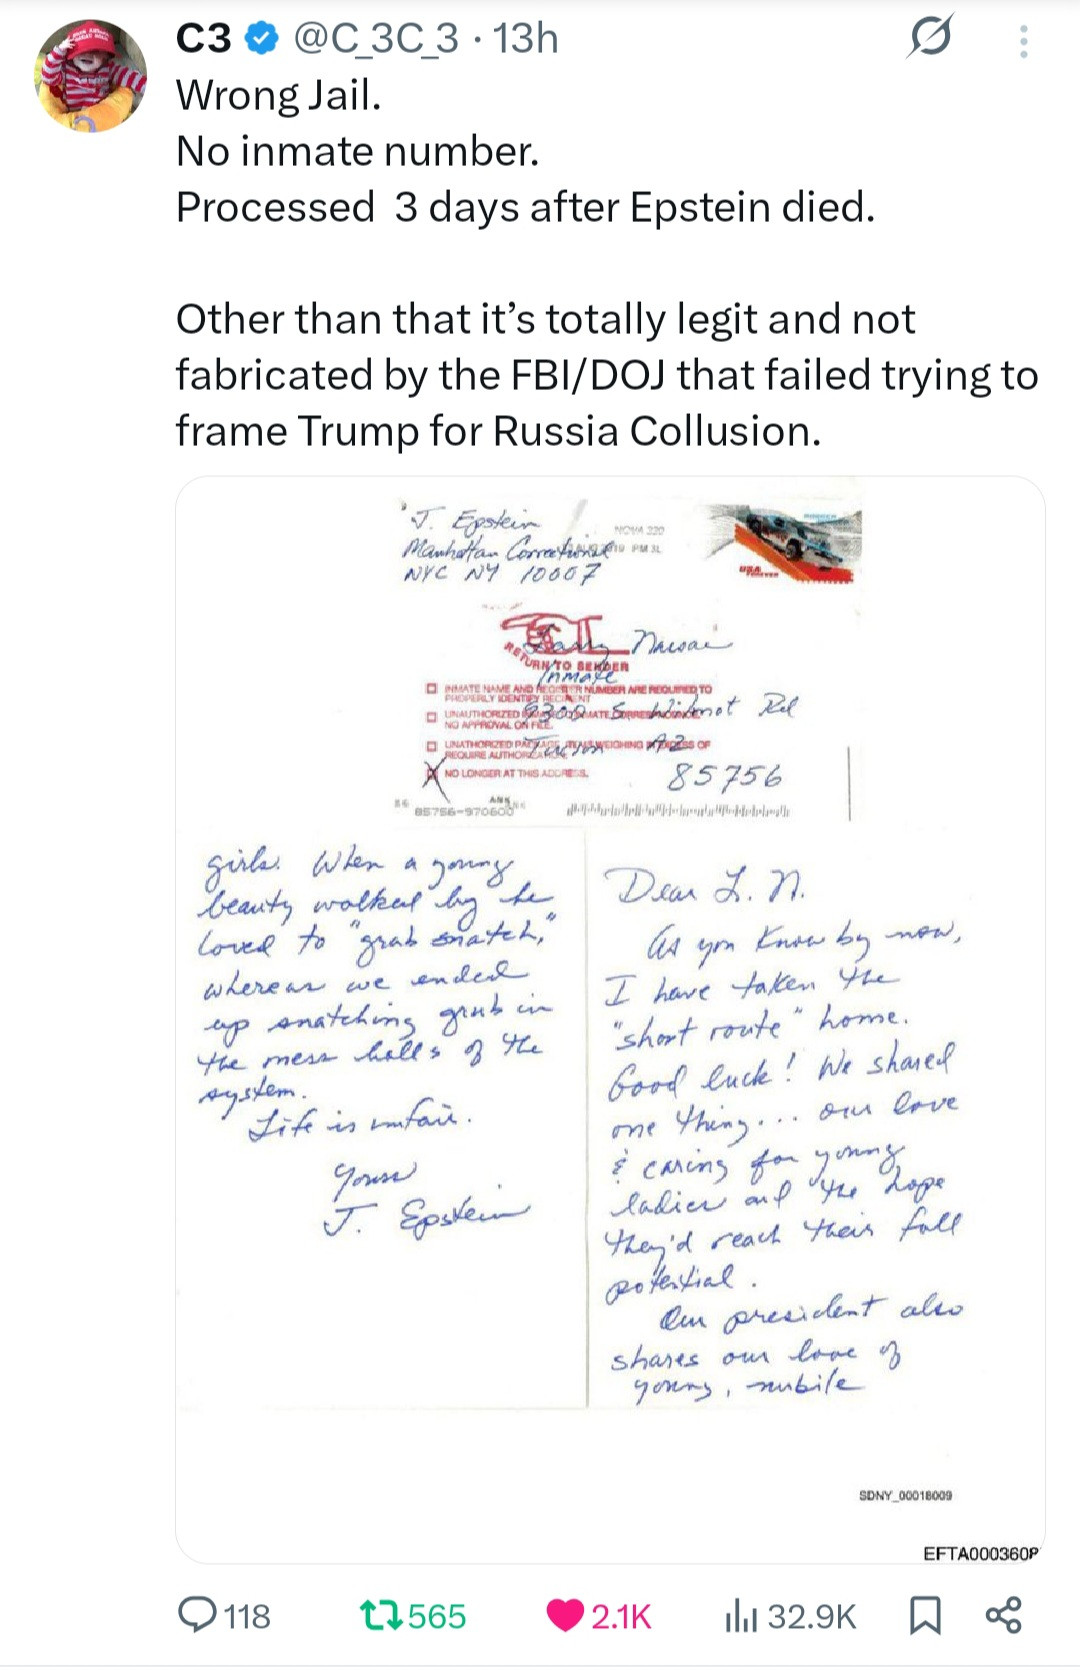 C3 @C_3C_3 · 13h
Wrong Jail.
No inmate number.
Processed 3 days after Epstein died.
Other than that it's totally legit and not
fabricated by the FBI/DOJ that failed trying to
frame Trump for Russia Collusion.
J. Epstein
Manhattan Correctional
NYC NY 10007
NOVA 220
PM 3L
USA
FOREVER
Larry Nassar
RETURN TO SENDER
Inmate
INMATE NAME AND REGISTER NUMBER ARE REQUIRED TO
PROPERLY IDENTIFY RECIPIENT
UNAUTHORIZED INMATE CORRESPONDENCE
NO APPROVAL ON FILE.
9300 S. Wilmot Rd
OF
REQUIRE
Tucson AZ
NO LONGER AT THIS ADDRESS.
85756
85756-970600
girls. When a young
beauty walked by he
loved to "grab snatch,"
whereas we ended
up snatching grub in
the mess halls of the
system.
Life is unfair.
Yours
J. Epstein
Dear L. N.
As you know by now,
I have taken the
"short route" home.
Good luck! We shared
one thing... our love
& caring for young
ladies and the hope
they'd reach their full
potential.
Our president also
shares our love of
young, nubile
SDNY_00018009
EFTA000360
118 565 2.1K 32.9K